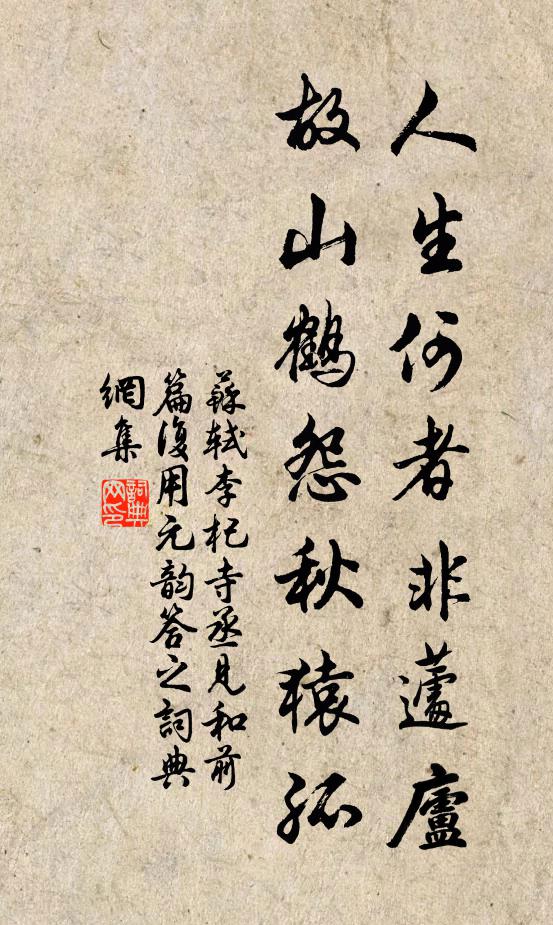 人生何者非蘧廬
故山鶴怨秋猿孤
蘇軾李杞寺丞見和前
篇復用元韵答之詞典
網集
詞典
网印